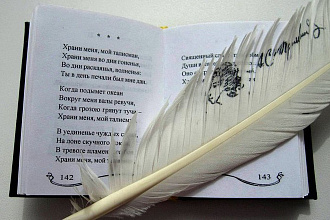 * * *
Храни меня, мой талисман,
Храни меня во дни гоненья,
Во дни раскаянья, волненья:
Ты в день печали был мне дан.
Когда подымет океан
Вокруг меня валы ревучи,
Когда грозою грянут тучи –
Храни меня, мой талисман.
В уединенье чужд
На лоне скучного
В тревоге пламен
Храни меня, мой
142
Священный
Души
143